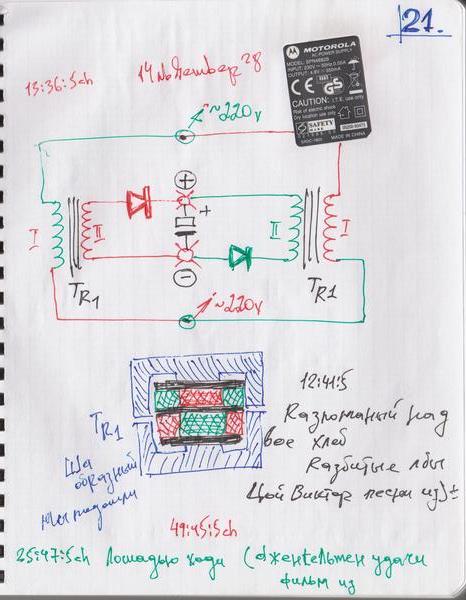 21.
13:36:5ch
14 November 28
MOTOROLA
AC POWER SUPPLY
MODEL: SPN4662B
INPUT: 230V ~ 50Hz 0.05A
CE GS
CAUTION: I.T.E. use only
Risk of electric shock
Dry location use only
SAFETY
MADE IN CHINA
i ~ 220v
+
+
−
I
II
II
I
TR1
TR1
i ~ 220v
12:41:5
TR1
вое хлеб
Разбитые лбы
Цой Виктор песни из) ±
Ша
образный
49:45:5ch
25:47:5ch Лошадью ходи (Джентельмен удачи
фильм из